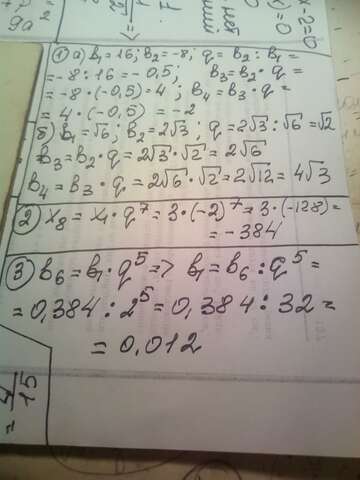 ① а) b₁=16; b₂=-8; q = b₂ : b₁ =
= -8 : 16 = -0,5; b₃=b₂·q =
= -8·(-0,5)=4; b₄=b₃·q =
= 4·(-0,5) = -2
б) b₁=√6; b₂=2√3; q=2√3:√6=√2
b₃=b₂·q=2√3·√2=2√6
b₄=b₃·q=2√6·√2=2√12=4√3
② x₈=x₁·q⁷=3·(-2)⁷=3·(-128)=
= -384
③ b₆=b₁·q⁵=> b₁=b₆:q⁵=
=0,384:2⁵=0,384:32=
=0,012
x-2=0
)=0
9a²=
= 4/15